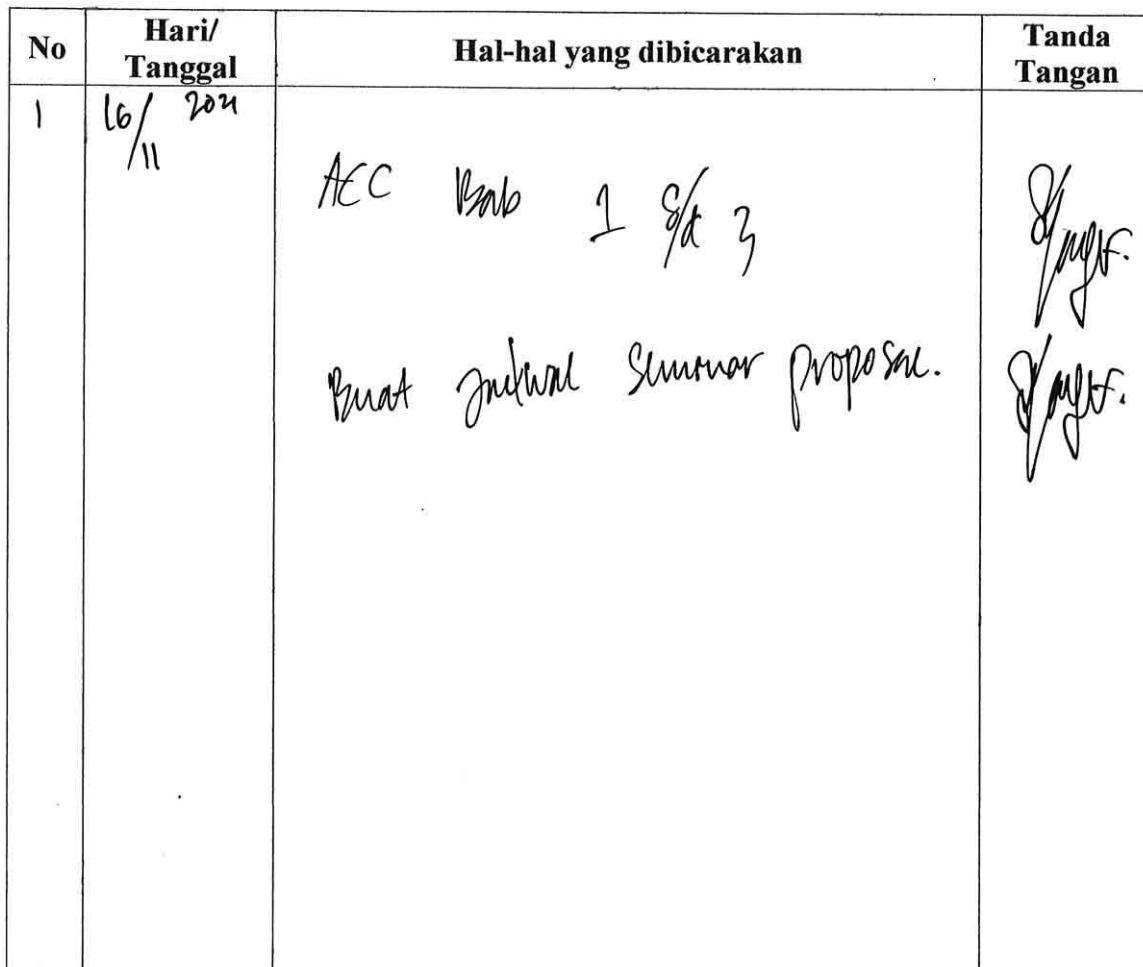 No Hari/ Tanggal Hal-hal yang dibicarakan Tanda Tangan
1 16/11 2021
ACC Bab 1 s/d 3
Buat Jadwal Seminar proposal.